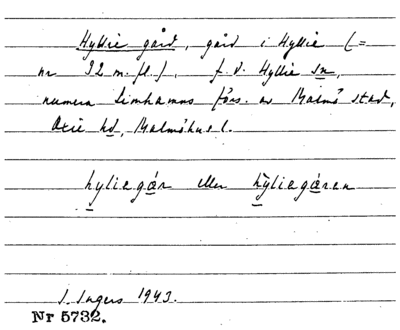 Hyllie gård, gård i Hyllie (=
nr 32 m. fl.), f. d. Hyllie sn,
numera Limhamns förs. av Malmö stad,
Oxie hd, Malmöhus l.
hyliegår eller hyliegåren
I. Ingers 1943.
Nr 5732.